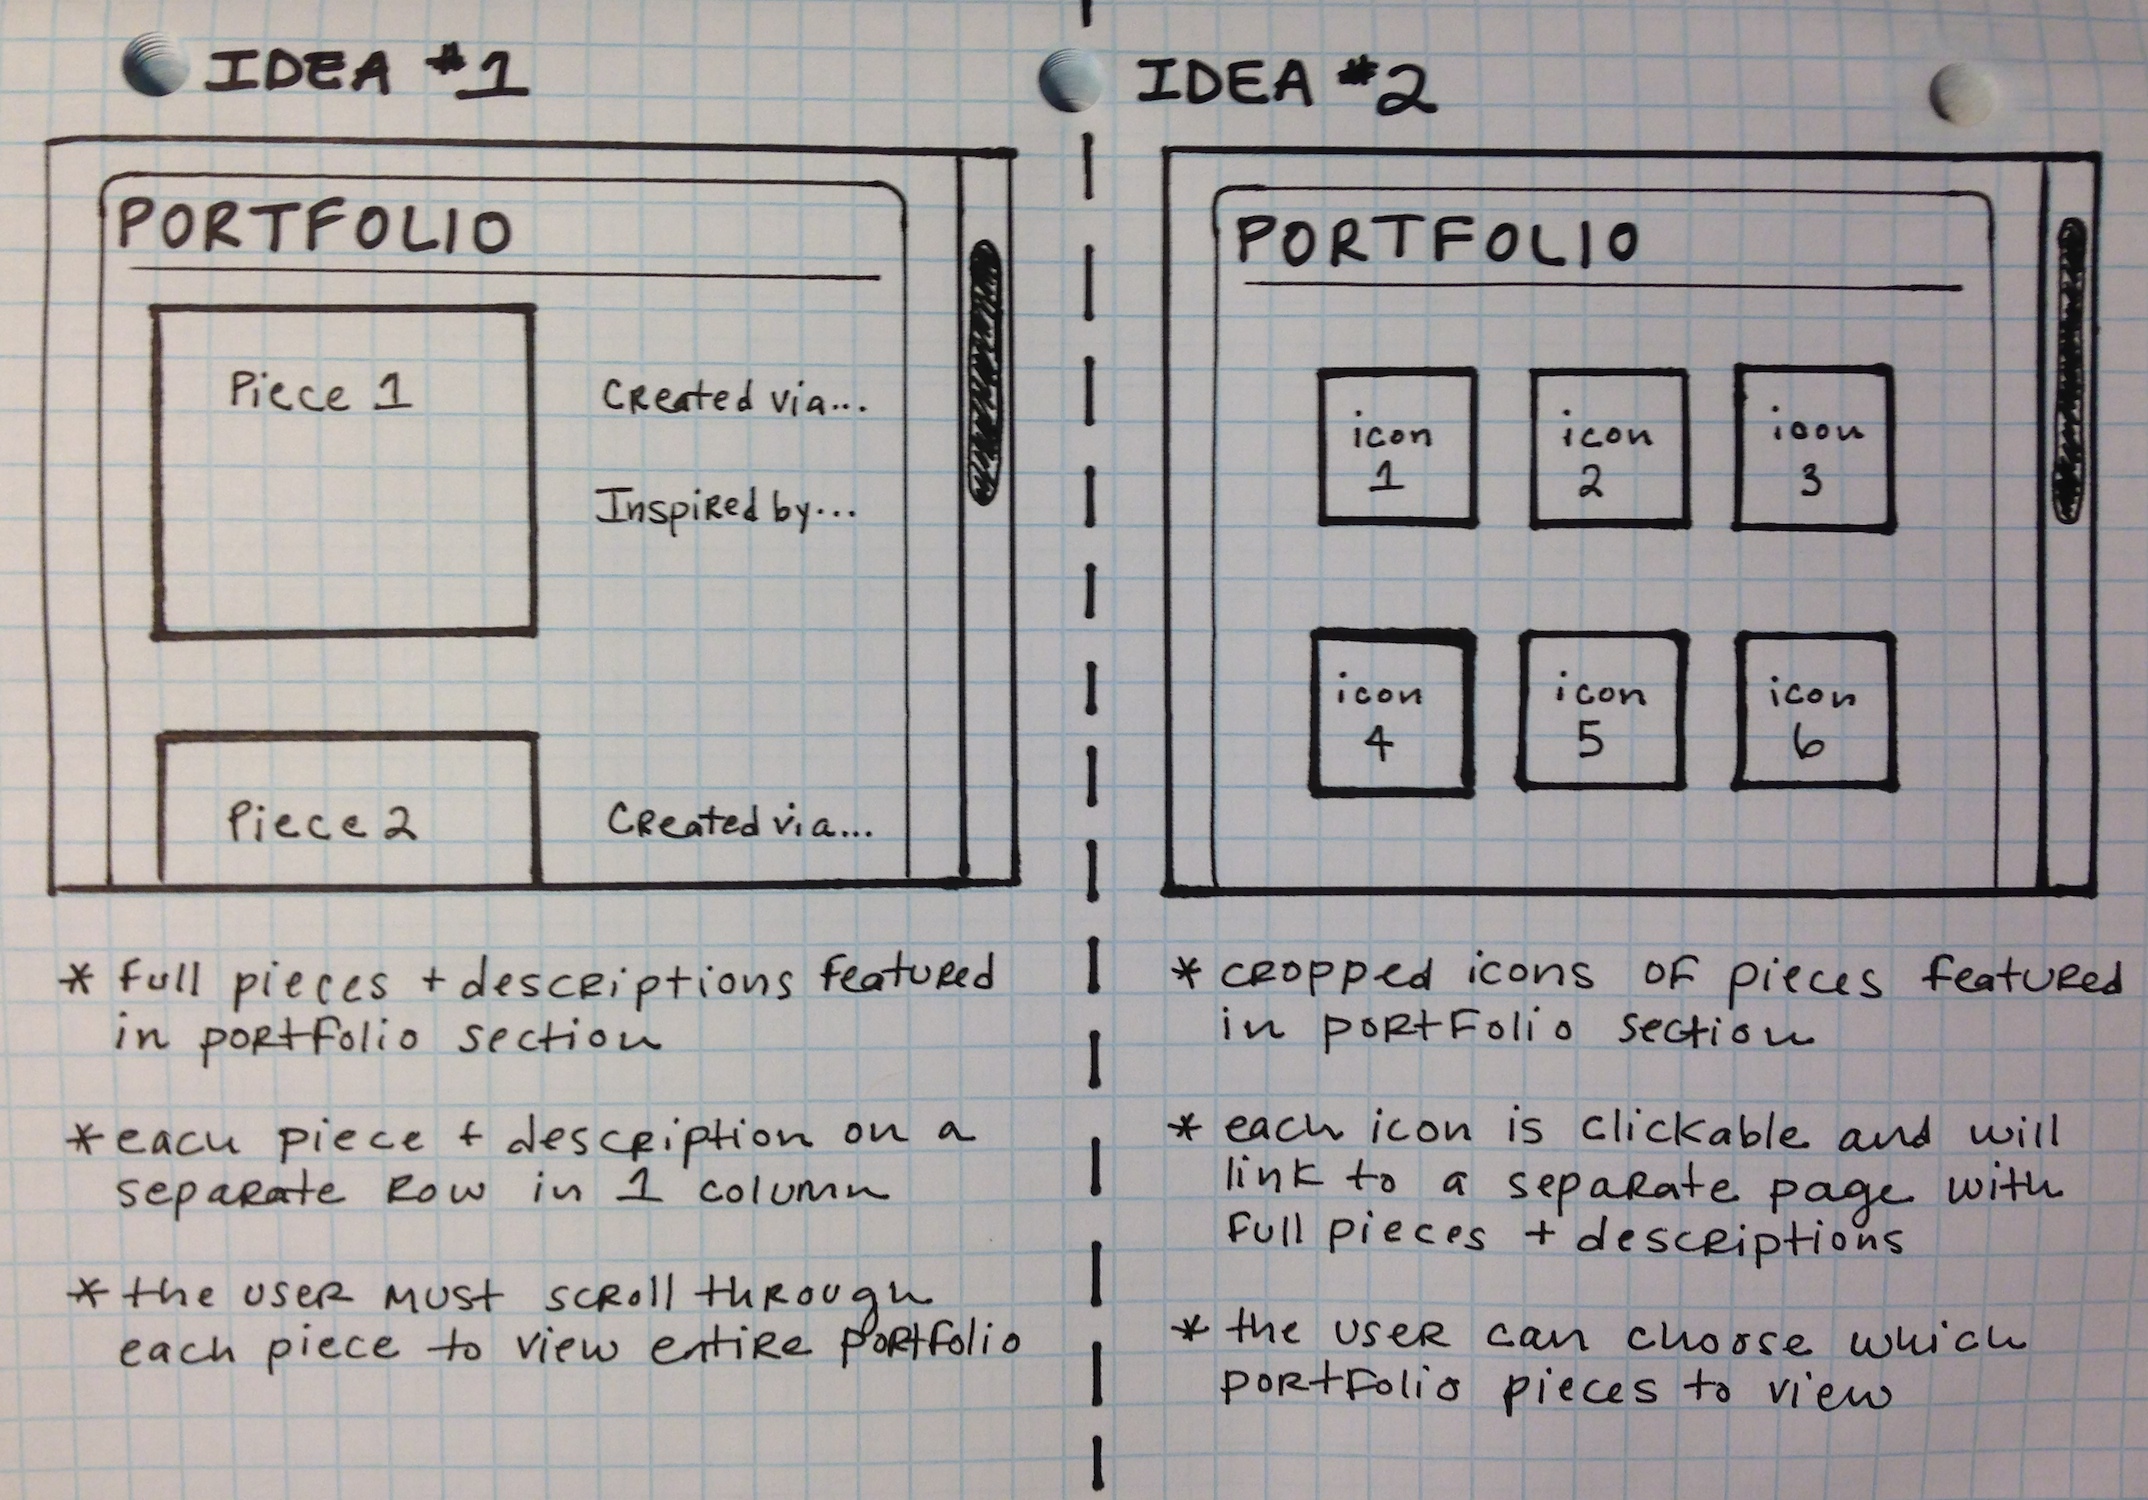 IDEA #1
PORTFOLIO
Piece 1
Created via...
Inspired by...
Piece 2
Created via...
* full pieces + descriptions featured
in portfolio section
* each piece + description on a
separate row in 1 column
* the user must scroll through
each piece to view entire portfolio
IDEA #2
PORTFOLIO
icon
1
icon
2
icon
3
icon
4
icon
5
icon
6
* cropped icons of pieces featured
in portfolio section
* each icon is clickable and will
link to a separate page with
full pieces + descriptions
* the user can choose which
portfolio pieces to view